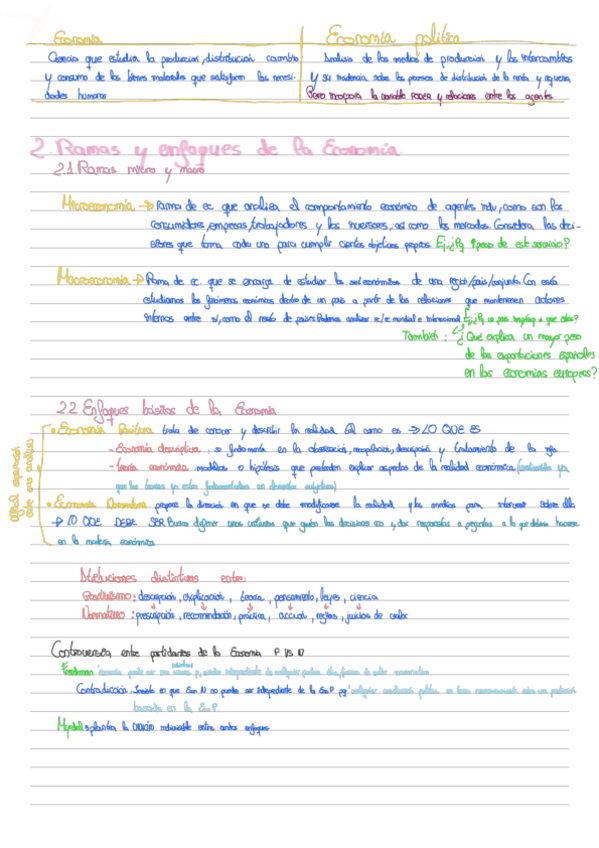 Economía
Ciencia que estudia la produccion, distribución cambio
y consumo de los bienes materiales que satisfacen las necesi-
dades humanas
Economía política
Analisis de los medios de produccion y los intercambios
y su tradencia sobre los procesos de distribución de la renta y riqueza
Pero incorpora la variable PODER y relaciones entre los agentes
2. Ramas y enfoques de la Economía
2.1. Ramas micro y macro
Microeconomía → Rama de ec. que analiza el comportamiento económico de agentes indv, como son los
consumidores, empresas, trabajadores y los inversores, así como los mercados. Considera las deci-
siones que toma cada uno para cumplir ciertos objetivos propios Ej: ¿Pq ↑ precio de este servicio?
Macroeconomía → Rama de ec. que se encarga de estudiar los de una región/país/conjunto. Con esta
estudiamos los fenomenos económicos dentro de un pais a partir de las relaciones que mantienen actores
internos entre sí, como el resto de paises. Podemos analizar mundial e internacional. Ej: ¿Pq un país
También: ¿Qué explica un mayor peso
de las exportaciones españolas
en las economías europeas?
2.2 Enfoques básicos de la Economía
• Economía Positiva trata de conocer y describir la realidad tal como es → LO QUE ES
- Economía descriptiva, se fundamenta en la observacion, recopilacion, descripcion y tratamiento de los
- teoría económica modelos o hipótesis que pretenden explicar aspectos de la realidad económica
que las teorias ya estan fundamentadas en elementos subjetivos)
• Economía Normativa propone la direccion en que se debe modificarse la realidad, y los medios para intervenir sobre ella
→ LO QUE DEBE SER Busca definir unos criterios que guíen las decisiones eco y dar respuestas a preguntas a lo que debemos hacerse
en la materia económica
distintivas entre:
Positivismo: descripción, explicación, teoría, pensamiento, leyes, ciencia
Normativo: prescripción, recomendación, práctica, accual, reglas, juicios de valor
Controversia entre partidarios de la Economía P VS N
Friedman economía puede ser una ciencia p, siendo independiente de cualquier postura ética, juicios de valor
Contradicción: Insiste en que Econ N no puede ser independiente de la EcoP pq cualquier
basada en la EcoP.
Myrdal: plantea la UNIÓN indisociable entre ambos enfoques